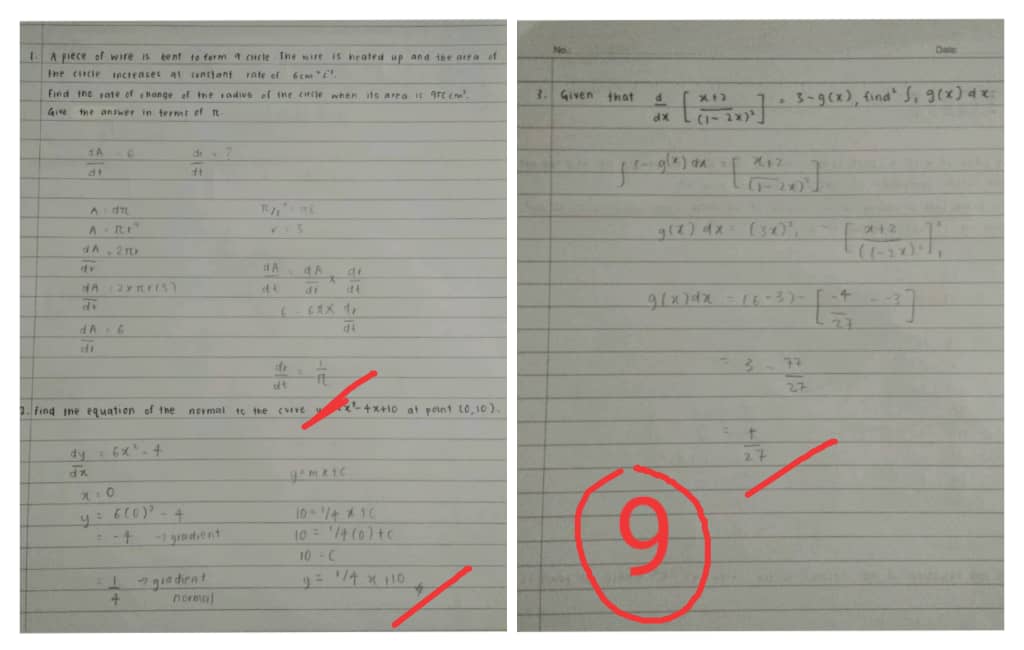 1. A piece of wire is bent to form a circle. The wire is heated up and the area of
the circle increases at constant rate of 6cm² s⁻¹.
Find the rate of change of the radius of the circle when its area is 9πcm².
Give the answer in terms of π.
dA/dt = 6   dr/dt = ?
A = πr²
dA/dr = 2πr   r = 3
dA/dt = dA/dr × dr/dt
6 = 6π × dr/dt
dA = 6
dr/dt = 1/π
2. Find the equation of the normal to the curve x³-4x+10 at point (0,10).
dy/dx = 6x² - 4
y = mx+c
x = 0
y = 6(0)² - 4   10 = 1/4 x + c
= -4 → gradient   10 = 1/4 (0) + c
10 = c
= 1/4 → gradient normal   y = 1/4 x +10
No.:
Date:
3. Given that d/dx [x+2/(1-2x)²] = 3-g(x), find ²∫₁ g(x) dx.
∫3-g(x) dx = [x+2/(1-2x)²]
g(x) dx = (3x)²₁ - [x+2/(1-2x)²]²₁
g(x)dx = (6-3) - [-4/27 - -3]
= 3 - 77/27
= 4/27
9